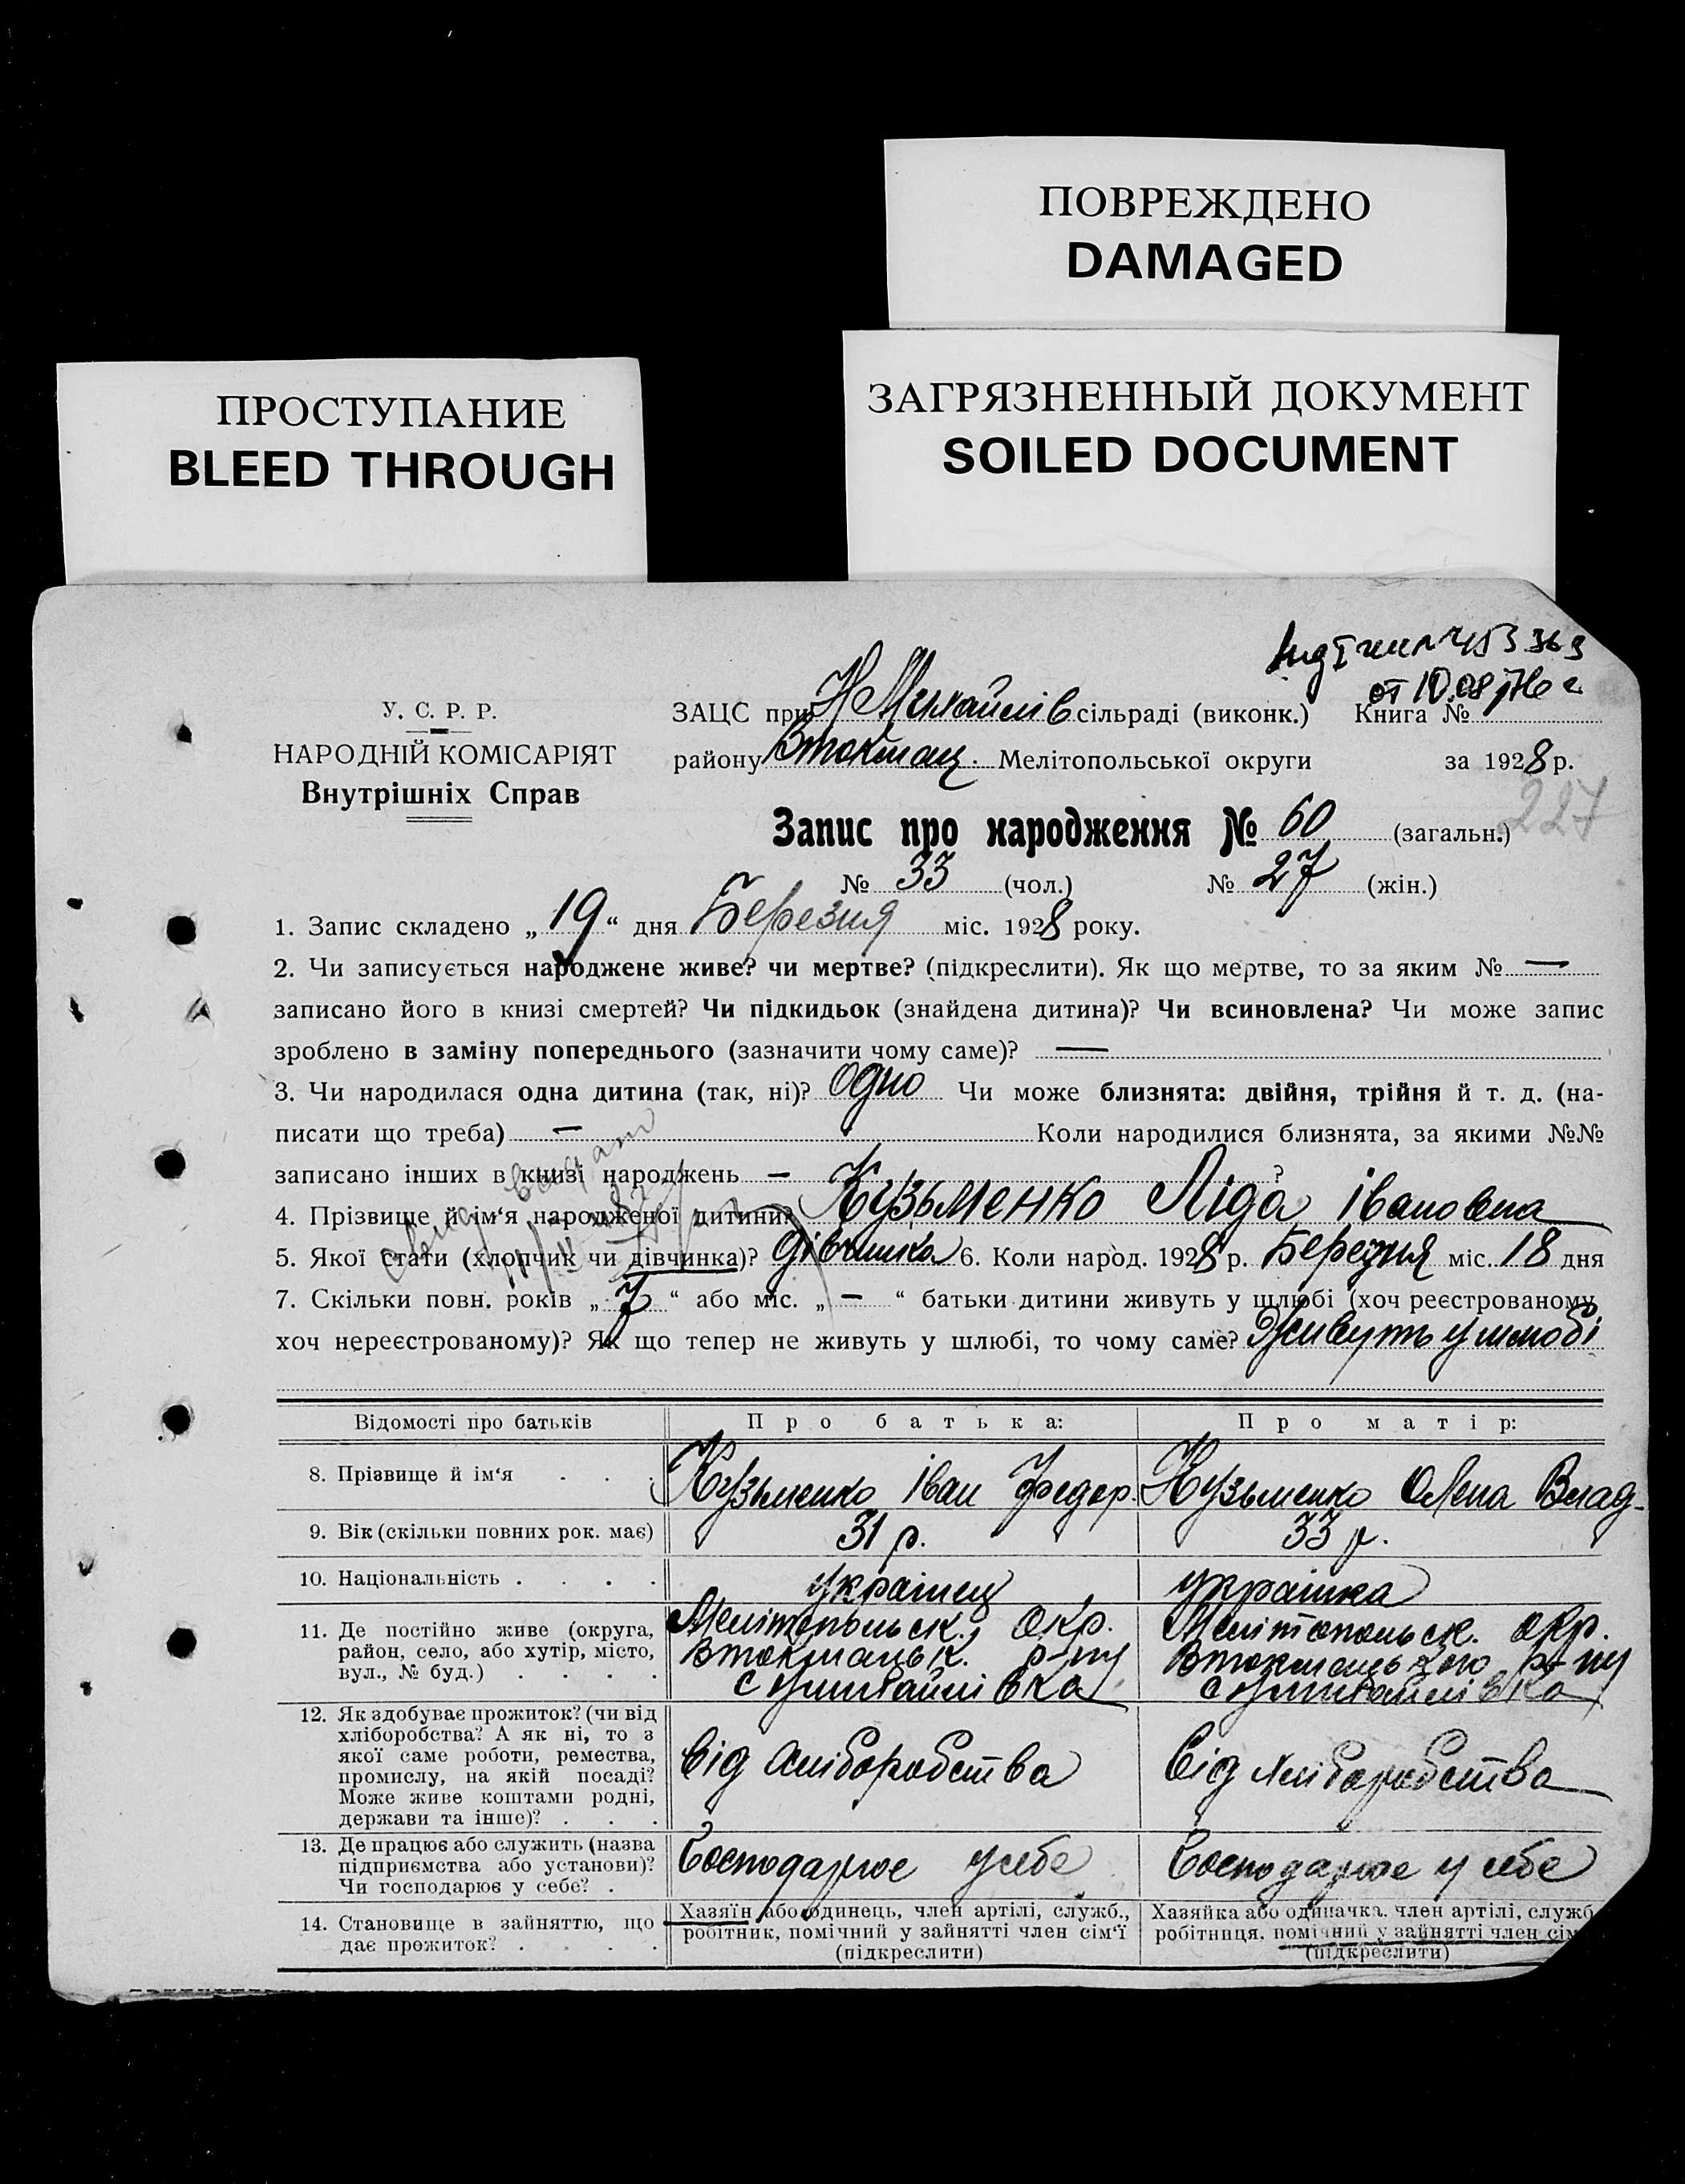 ПОВРЕЖДЕНО
DAMAGED
ПРОСТУПАНИЕ
BLEED THROUGH
ЗАГРЯЗНЕННЫЙ ДОКУМЕНТ
SOILED DOCUMENT
от 10.08
У. С. Р. Р.
НАРОДНІЙ КОМІСАРІЯТ
Внутрішніх Справ
ЗАЦС при Н Михайлів сільраді (виконк.) Книга №
району Втокмац. Мелітопольської округи за 1928 р.
227
Запис про народження № 60 (загальн.)
№ 33 (чол.) № 27 (жін.)
1. Запис складено „19“ дня Березня міс. 1928 року.
2. Чи записується народжене живе? чи мертве? (підкреслити). Як що мертве, то за яким № —
записано його в книзі смертей? Чи підкидьок (знайдена дитина)? Чи всиновлена? Чи може запис
зроблено в заміну попереднього (зазначити чому саме)? —
3. Чи народилася одна дитина (так, ні)? Одно Чи може близнята: двійня, трійня й т. д. (на-
писати що треба) — Коли народилися близнята, за якими №№
записано інших в книзі народжень — ?
4. Прізвище й ім‘я народженої дитини? Кузьменко Ліда Івановна
5. Якої стати (хлопчик чи дівчинка)? дівчинка 6. Коли народ. 1928 р. Березня міс. 18 дня
7. Скільки повн. років „7“ або міс. „—“ батьки дитини живуть у шлюбі (хоч реєстрованому,
хоч нереєстрованому)? Як що тепер не живуть у шлюбі, то чому саме? Живуть у шлюбі
Відомості про батьків Про батька: Про матір:
8. Прізвище й ім‘я . . . Кузьменко Іван Федор. Кузьменко Олена Влад.
9. Вік (скільки повних рок. має) 31 р. 33 р.
10. Національність . . . . українец українка
11. Де постійно живе (округа, Мелітопольськ. Окр. Мелітопольск. окр.
район, село, або хутір, місто, Втокмацьк. р-ну Втокмацького р-ну
вул., № буд.) . . . . с Михайлівка с Михайлівка
12. Як здобуває прожиток? (чи від
хліборобства? А як ні, то з
якої саме роботи, ремества, Від хліборобства Від хліборобства
промислу, на якій посаді?
Може живе коштами родні,
держави та інше)? . . .
13. Де працює або служить (назва
підприємства або установи)? Господарює у себе Господарює у себе
Чи господарює у себе? .
14. Становище в зайняттю, що Хазяїн або одинець, член артілі, служб., Хазяйка або одиначка. член артілі, служб
дає прожиток? . . . . робітник, помічний у зайнятті член сім‘ї робітниця, помічний у зайнятті член сім
(підкреслити) (підкреслити)